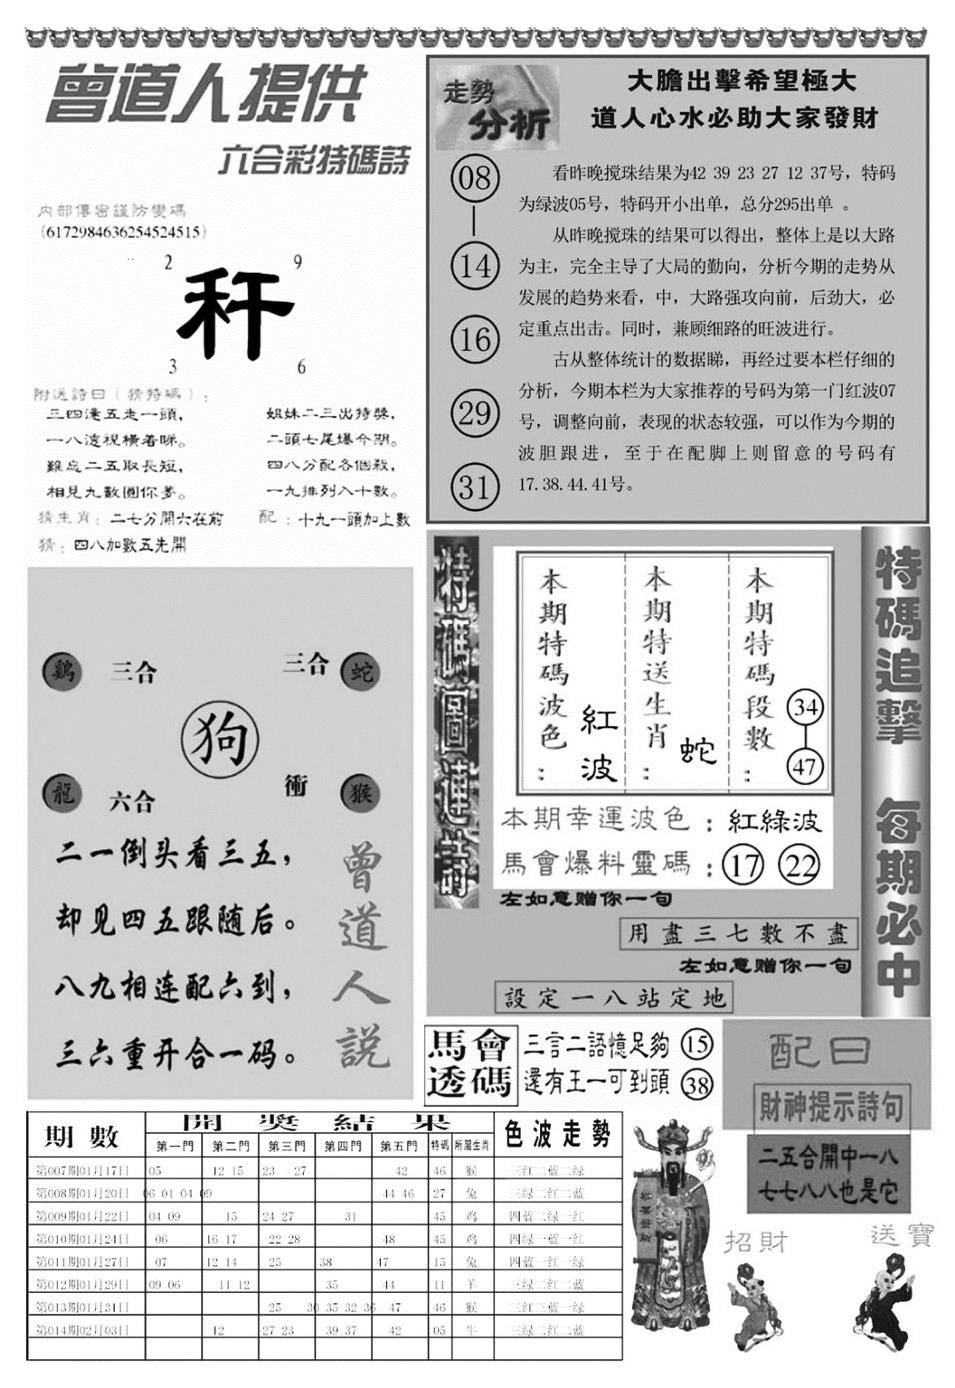 曾道人提供
六合彩特碼詩
内部傳密謹防變碼
(6172984636254524515)
2 9
秆
3 6
附送詩曰(猜特碼):
三四逢五走一頭,
一八遠視橫着睇。
難忘二五取長短,
相見九數圓你夢。
姐妹二三出特獎,
二頭七尾爆今期。
四八分配各個殺,
一九排列入十數。
猜生肖:二七分開六在前
配:十九一頭加上數
猜:四八加數五先開
走勢
分析
大膽出擊希望極大
道人心水必助大家發財
08
14
16
29
31
看昨晚搅珠结果为42 39 23 27 12 37号,特码
为绿波05号,特码开小出单,总分295出单 。
从昨晚搅珠的结果可以得出,整体上是以大路
为主,完全主导了大局的勤向,分析今期的走势从
发展的趋势来看,中,大路强攻向前,后劲大,必
定重点出击。同时,兼顾细路的旺波进行。
古从整体统计的数据睇,再经过要本栏仔细的
分析,今期本栏为大家推荐的号码为第一门红波07
号,调整向前,表现的状态较强,可以作为今期的
波胆跟进,至于在配脚上则留意的号码有
17.38.44.41号。
鷄 三合
三合 蛇
狗
龍 六合
衝 猴
二一倒头看三五,
却见四五跟随后。
八九相连配六到,
三六重开合一码。
曾道人説
特碼圖連詩
本期特碼波色:
紅波
本期特送生肖:
蛇
本期特碼段數:
34
47
本期幸運波色:紅綠波
馬會爆料靈碼:17 22
左如意赠你一句
用盡三七數不盡
左如意赠你一句
設定一八站定地
特碼追擊 每期必中
馬會透碼
三言二語憶足夠 15
還有王一可到頭 38
配曰
財神提示詩句
二五合開中一八
七七八八也是它
招財
送寶
期數 開獎結果 色波走勢
第一門 第二門 第三門 第四門 第五門 特碼 所屬生肖
第007期01月17日 05 12 15 23 27 42 46 猴 三红二蓝二绿
第008期01月20日 06 01 04 09 44 46 27 兔 三绿二红二蓝
第009期01月22日 04 09 15 24 27 31 45 鸡 四蓝二绿一红
第010期01月24日 06 16 17 22 28 48 45 鸡 四绿一蓝一红
第011期01月27日 07 12 14 25 38 47 15 兔 四蓝一红一绿
第012期01月29日 09 06 11 12 35 44 11 羊 三绿二红二蓝
第013期01月31日 25 30 35 32 36 47 46 猴 三红三蓝一绿
第014期02月03日 12 27 23 39 37 42 05 牛 三绿二红二蓝